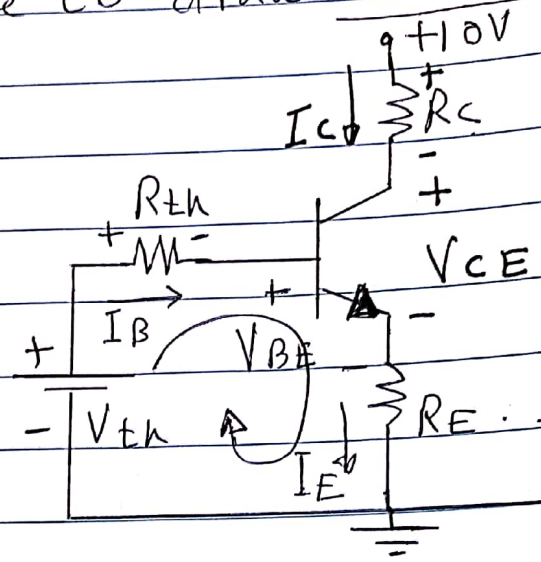 +10V
+
IC RC
-
+
Rth
+ -
VCE
IB + -
+ VBE -
- Vth
RE
IE